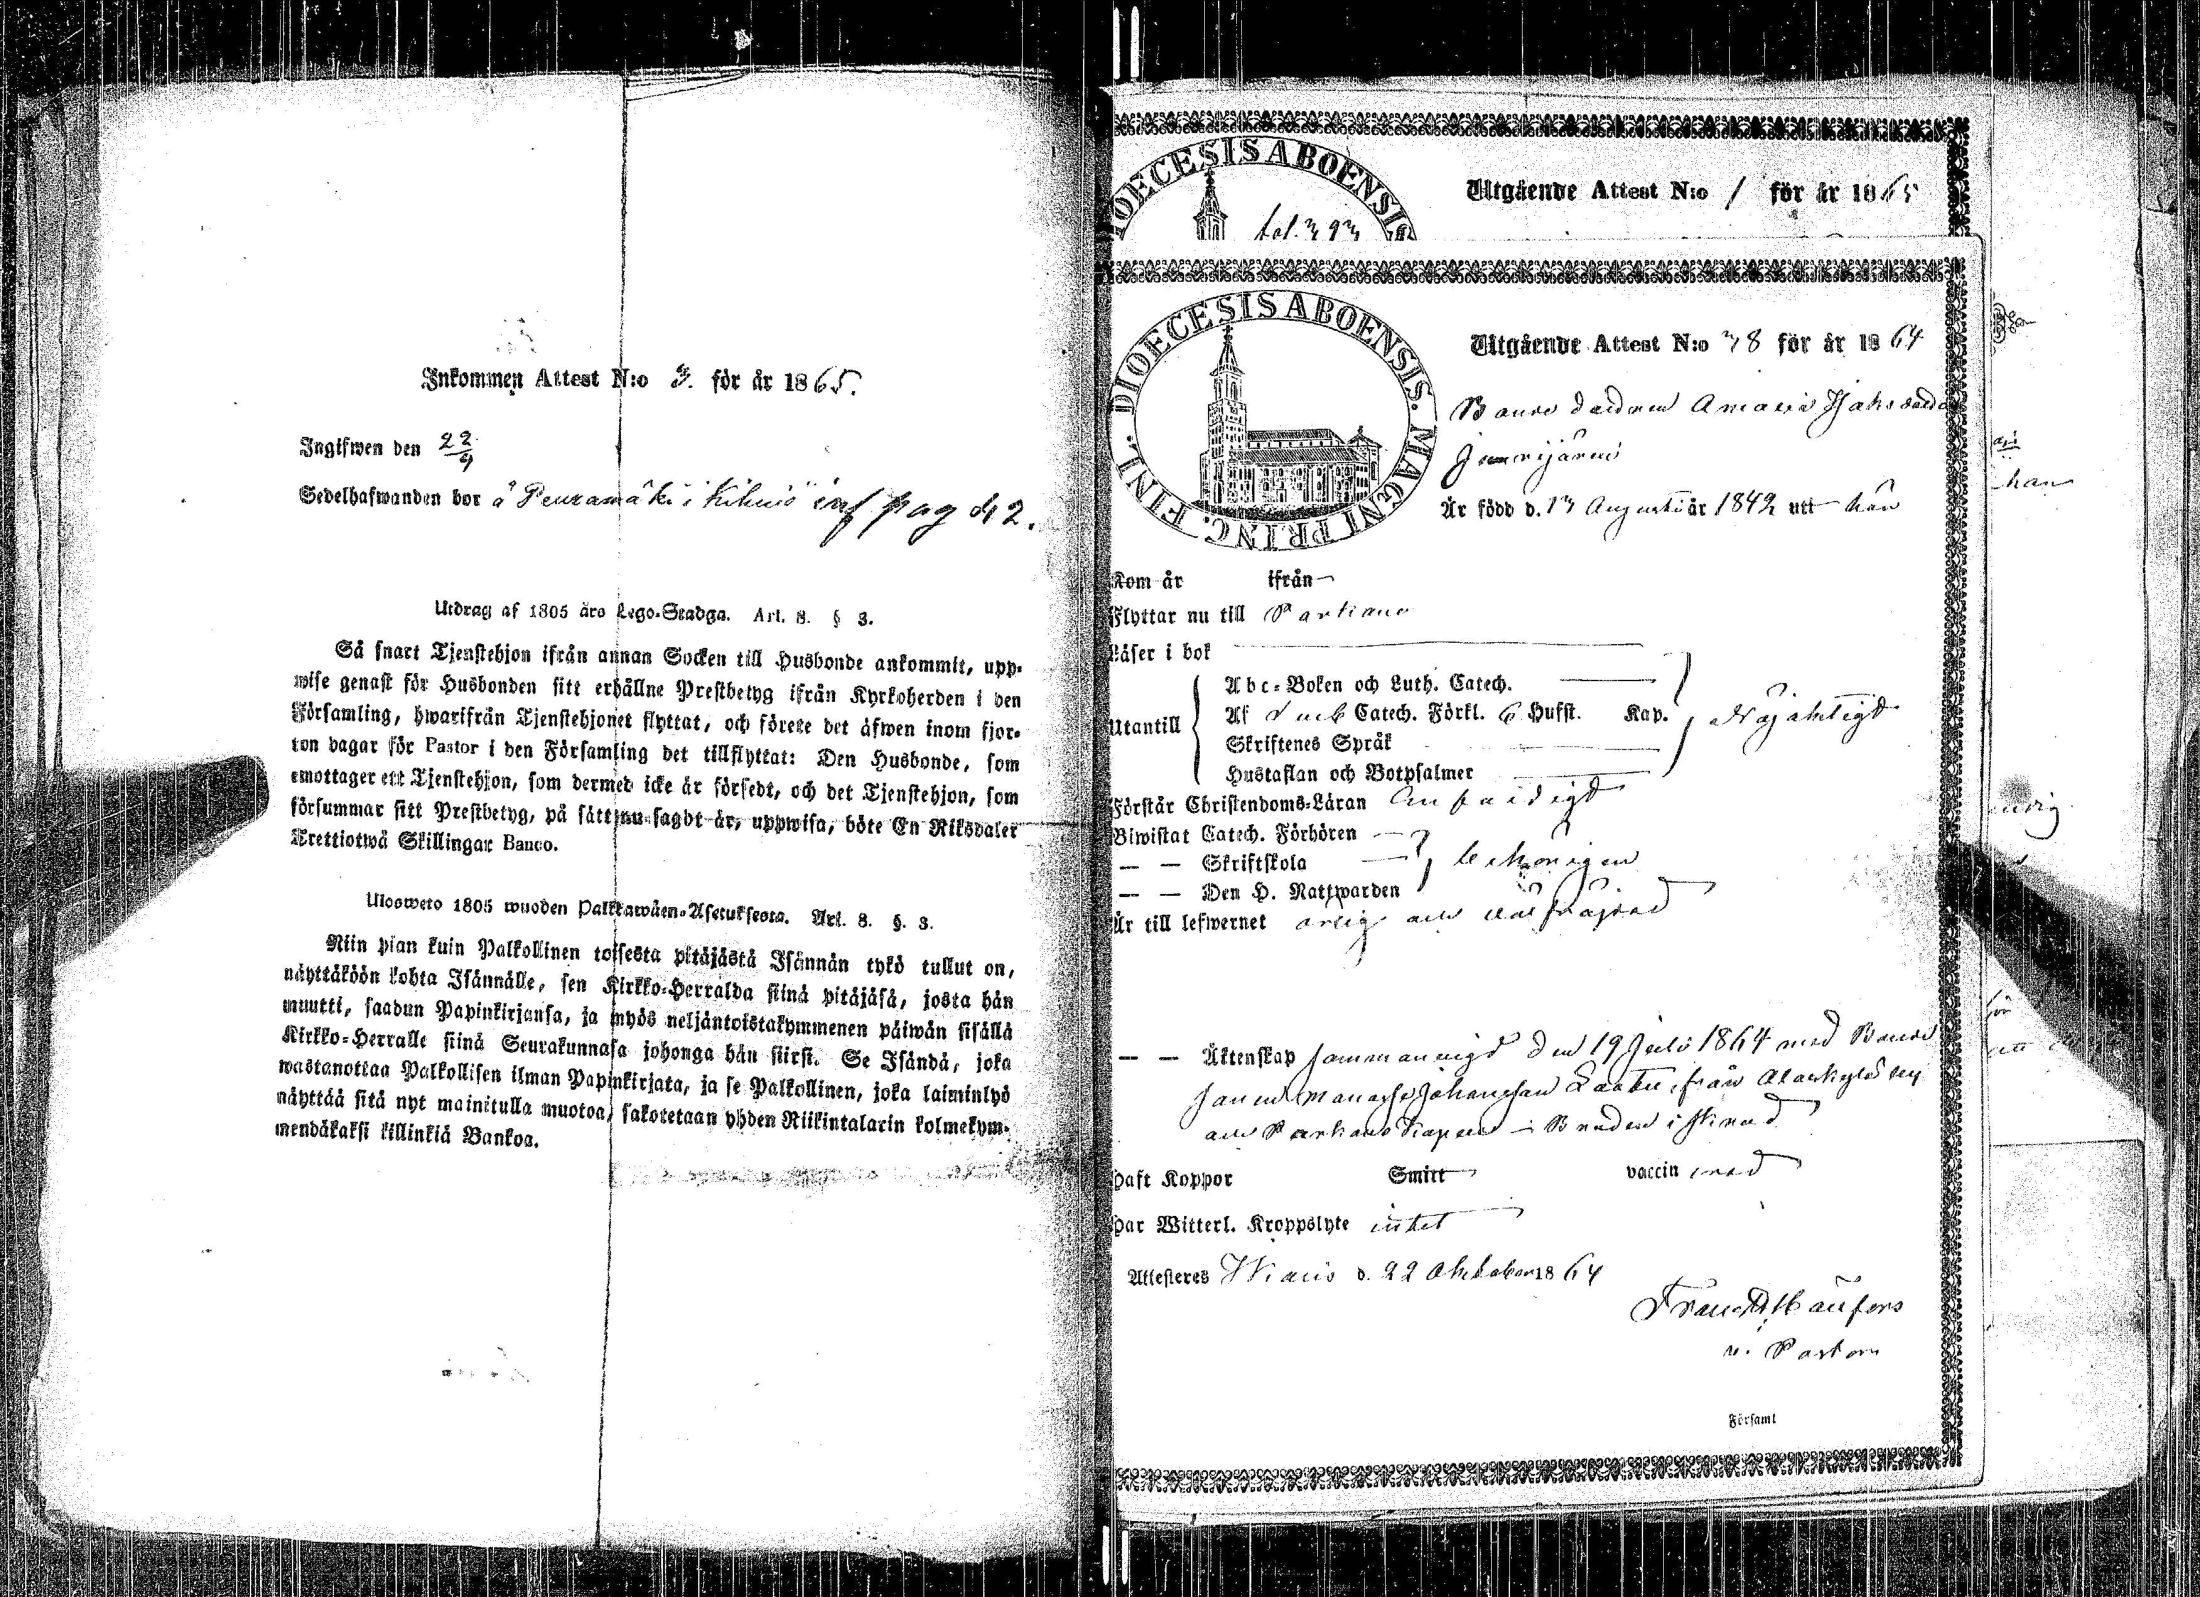 Inkommen Attest N:o 3. för år 1865.
Ingifwen den 22/4
Sedelhafwanden bor å Peuramäki i Kihniö inf pag 42.
Utdrag af 1805 års Lego-Stadga. Art. 8. § 3.
Så snart Tjenstehjon ifrån annan Socken till Husbonde ankommit, upp-
wise genast för Husbonden sitt erhållne Prestbetyg ifrån Kyrkoherden i den
Församling, hwarifrån Tjenstehjonet flyttat, och förete det äfwen inom fjor-
ton dagar för Pastor i den Församling det tillflyttat: Den Husbonde, som
emottager ett Tjenstehjon, som dermed icke är försedt, och det Tjenstehjon, som
försummar sitt Prestbetyg, på sätt nu sagdt är, uppwisa, böte En Riksdaler
Trettiotwå Skillingar Banco.
Ulosweto 1805 wuoden Palkkawäen-Asetuksesta. Art. 8. §. 3.
Niin pian kuin Palkollinen toisesta pitäjästä Isännän tykö tullut on,
näyttäköön kohta Isännälle, sen Kirkko-Herralda siinä pitäjäsä, josta hän
muutti, saadun Papinkirjansa, ja myös neljäntoistakymmenen päiwän sisällä
Kirkko-Herralle siinä Seurakunnasa johonga hän siirsi. Se Isändä, joka
wastanottaa Palkollisen ilman Papinkirjata, ja se Palkollinen, joka laiminlyö
näyttää sitä nyt mainitulla muotoa, sakotetaan yhden Riikintalarin kolmekym-
mendäkaksi killinkiä Bankoa.
DIOECESIS ABOENSIS
Utgående Attest N:o 1 för år 1865
fol. 393
DIOECESIS ABOENSIS. MAGNI PRINC. FINL.
Utgående Attest N:o 38 för år 1864
Bonde Amalia
Är född d. 13 Augusti år 1842 utt här
Kom år ifrån
Flyttar nu till Parkano
Läser i bok
Abc-Boken och Luth. Catech.
Utantill Af Catech. Förkl. 6 Hufst. Kap. Nöjaktigt
Skriftenes Språk
Hustaflan och Botpsalmer
Förstår Christendoms-Läran
Biwistat Catech. Förhören
— — Skriftskola behörigen
— — Den H. Nattwarden
Är till lefwernet ärlig och wälfräjdad
— — Äktenskap sammanwigd den 19 Juli 1864 med Bonde
sonen Manasse Johansson från
och Parkano Kapell
Haft Koppor Smitt vaccin med
Har Witterl. Kroppslyte intet
Attesteras Ikalis d. 22 Oktober 1864
v. Pastor
Församl